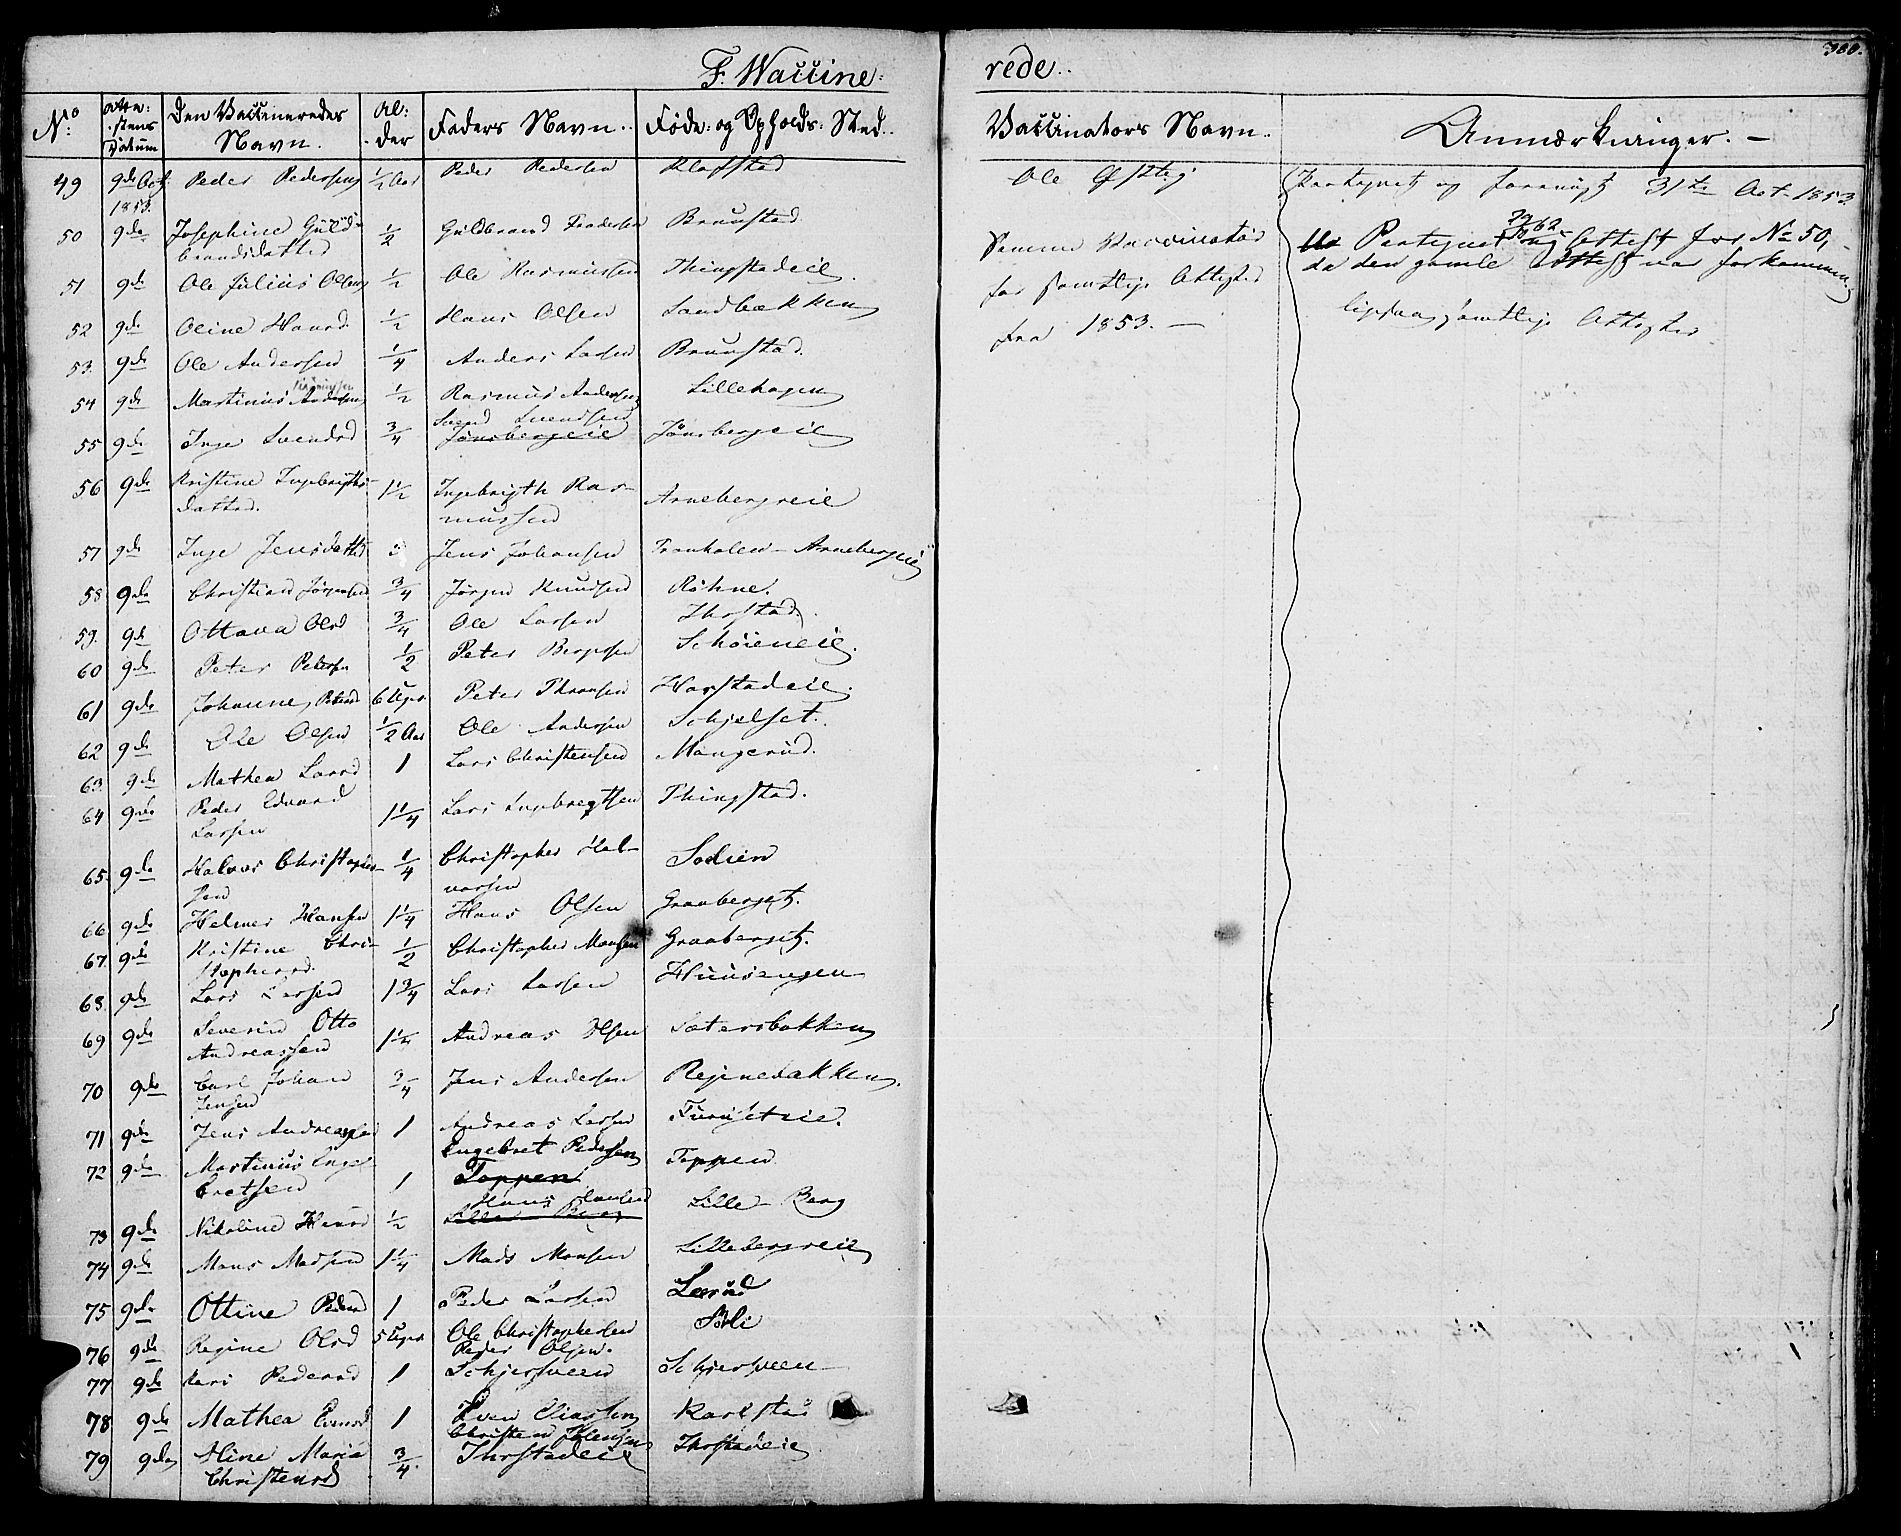 F. Waccine=
rede..
300.
No. Atte=stens Datum Den Vaccineredes Navn. Al=der Faders Navn. Føde= og Opholds=Sted.. Vaccinators Navn. Anmærkninger. –
49 9de Oct. 1853. Peder Pedersen 1/2 Aar Peder Pedersen Klafstad Ole 31te Oct. 1853.
50 9de Josephine Guldbrandsdatter 1/2 Guldbrand Brunstad Samme Vaccinatør Attest for No 50,
51 9de Ole Julius Olsen 1/2 Ole Rasmussen Thingstadeie. for samtlige Attester da den gamle Attest var forkommen
52 9de Oline Hansd. 1/2 Hans Olsen Sandbækken fra 1853. – samtlige Attester
53. 9de Ole Andersen 1/4 Anders Larsen Brunstad.
54 9de Martinius Andersen 1/2 Rasmus Andersen Lillehagen
55 9de Inge Svendsd 3/4 Svend Svendsen Jønsbergeie Jønsbergeie
56 9de Kristine Ingebrigtsdatter. 1 1/2 Ingebrigth Rasmussen Arnebergeie
57 9de Inge Jensdatter 5 Jens Johansen Arnebergeie
58 9de Christian Jørgensen 3/4 Jørgen Knudsen Røhne.
59. 9de Ottava Olsd 3/4 Ole Larsen Thorstad.
60 9de Peter Petersen 1/2 Peter Bergesen Schøieneie.
61 9de Johanne Petersd 6 Uger Peter Harstadeie.
62 9de Ole Olsen 1/2 Aar Ole Andersen Schjelset.
63. 9de Mathea Larsd 1 Lars Christensen Mangerud.
64 9de Peder Edvard Larsen 1 1/4 Lars Ingebregtsen Thingstad.
65. 9de Halvor Christophersen 1/4 Christopher Halvorsen
66 9de Helmer Hansen 1 1/4 Hans Olsen Graaberget.
67. 9de Kristine Christophersd. 1/2 Christopher Monsen Graaberget.
68. 9de Lars Larsen 1 3/4 Lars Larsen Huusengen
69 9de Severin Otto Andreassen 1 1/4 Andreas Olsen Sætersbakken
70 9de Carl Johan Jensen 3/4 Jens Andersen
71 9de Jens Andreassen 1 Andreas Larsen Furuseteie.
72 9de Martinius Engebretsen 1 Engebret Pedersen Toppen Toppen
73 9de Nikoline Hansd 1/2 Hans Hansen Lille Berg Lille – Berg
74 9de Mons Madsen 1 1/4 Mads Monsen Lillebergeie
75 9de Ottine Pedersd 1 Peder Larsen Lerud
76 9de Regine Olsd 5 Uger Ole Christophersen Søli
77 9de Kari Pedersd 1 Peder Olsen. Schjersveen Schjersveen
78 9de Mathea Evensd 1 Even Eliassen Karlstad
79 9de Aline Maria Christensd 3/4. Christen Johansen Thorstadeie Thorstadeie